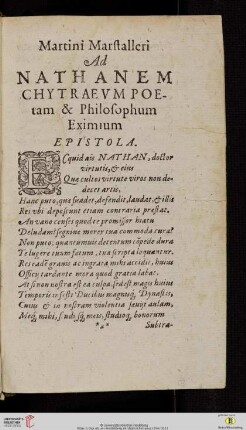 Martini Marſtalleri
Ad
NATHANEM
CHYTRAEVM POE-
tam & Philoſophum
Eximium
EPISTOLA.
ECquid ais NATHAN, doctor
virtutis, & eius
Quæ cultos virtute viros non de-
decet artis.
Hanc puto, quæ ſuades, defendit, laudat, & illis
Res vbi depoſcunt etiam contraria præſtat.
An vano cenſes quod te promiſſor hiatu
Deludam? ſegnem mouet tua commoda cura?
Non puto: quantumuis detentum
Te lugere tuum factum, tua ſcripta loquuntur.
Res cadit grauis ac ingrata mihi accidit, huius
Officij tardante mora quod gratia labat.
At ſi non noſtra eſt ea culpa: ſed eſt magis huius
Temporis
Cuius & in noſtram violentia ſæuijt aulam,
Meq́; mihi, ſtudijsq́; meis, ſtudioq́; bonorum
*** Subtra-